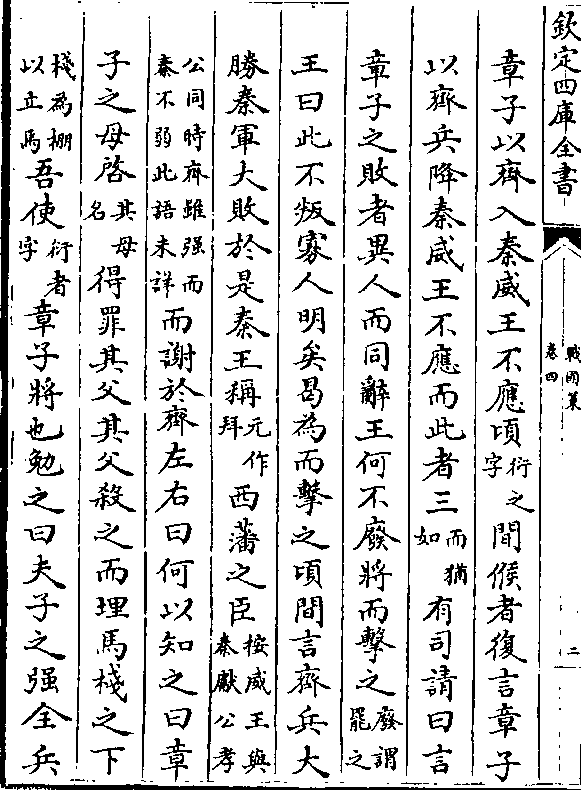 欽定四庫全書
戰國策
卷四
二
章子以齊入秦威王不應頃衍之字間候者復言章子
以齊兵降秦威王不應而此者三而猶如有司請曰言
章子之敗者異人而同辭王何不廢將而擊之廢謂罷之
王曰此不叛寡人明矣曷為而擊之頃間言齊兵大
勝秦軍大敗於是秦王稱元作拜西藩之臣按威王與秦獻公孝
公同時齊雖强而秦不弱此語未詳而謝於齊左右曰何以知之曰章
子之母啓其母名得罪其父其父殺之而埋馬棧之下
棧為棚以立馬吾使衍者字章子將也勉之曰夫子之强全兵